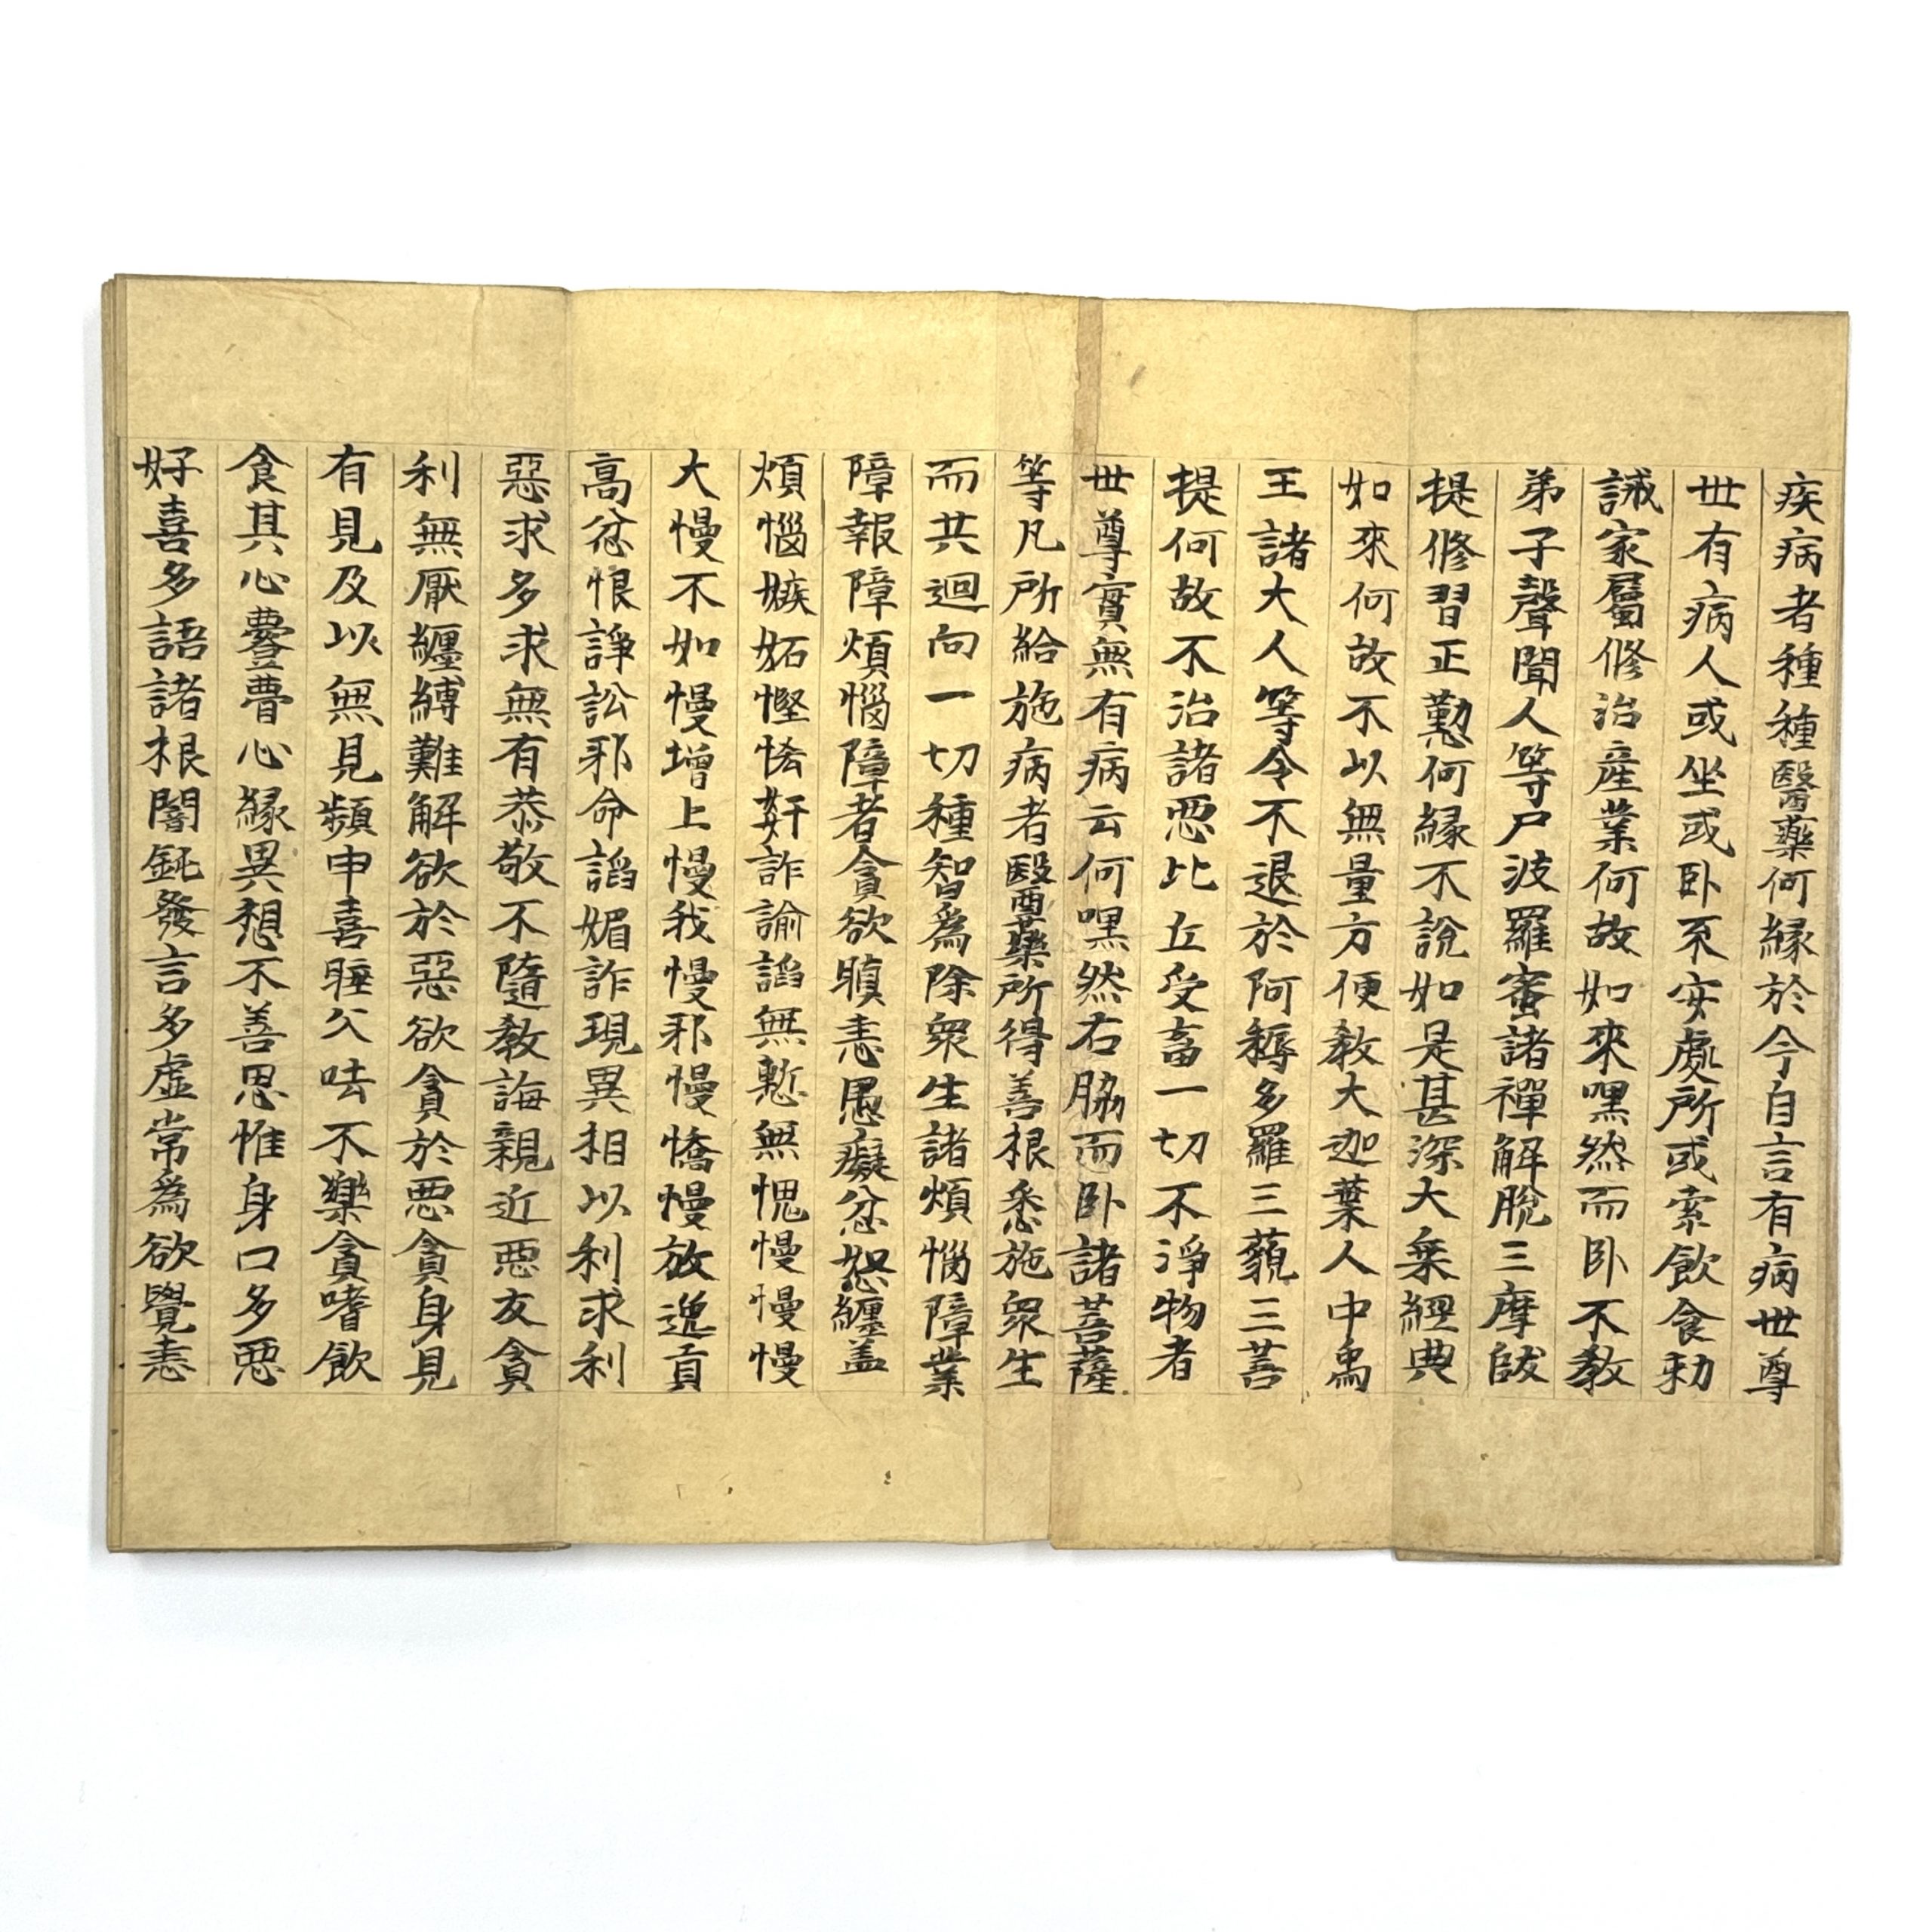 疾病者種種醫藥何縁於今自言有病世尊
世有病人或坐或卧不安處所或索飲食勑
誡家屬修治産業何故如來嘿然而卧不教
弟子聲聞人等尸波羅蜜諸禪解脫三摩鈸
提修習正懃何縁不說如是甚深大乗經典
如來何故不以無量方便教大迦葉人中為
王諸大人等令不退於阿耨多羅三藐三菩
提何故不治諸惡比丘受畜一切不淨物者
世尊實無有病云何嘿然右脇而卧諸菩薩
等凡所給施病者醫藥所得善根悉施衆生
而共迴向一切種智爲除衆生諸煩惱障業
障報障煩惱障者貪欲瞋恚愚癡忿怒纏盖
煩惱嫉妬慳悋姧詐諭諂無慙無愧慢慢慢
大慢不如慢增上慢我慢邪慢憍慢放逸貢
高忿恨諍訟邪命諂媚詐現異相以利求利
惡求多求無有恭敬不隨教誨親近惡友貪
利無厭纏縛難解欲於惡欲貪於惡貪身見
有見及以無見頻申喜睡欠呿不樂貪嗜飲
食其心瞢瞢心縁異想不善思惟身口多惡
好喜多語諸根闇鈍發言多虛常爲欲覺恚